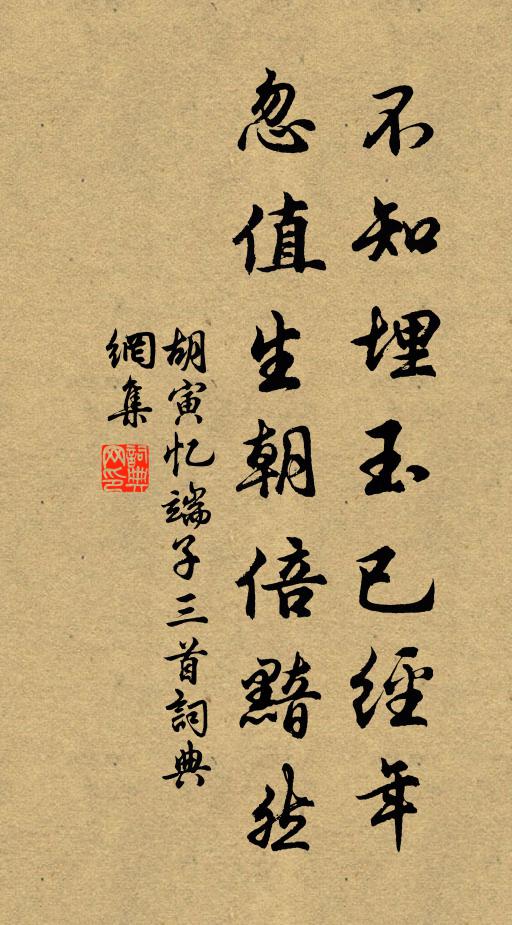 不知埋玉已經年
忽值生朝倍黯然
胡寅忆端子三首詞典
網集
詞典
网印